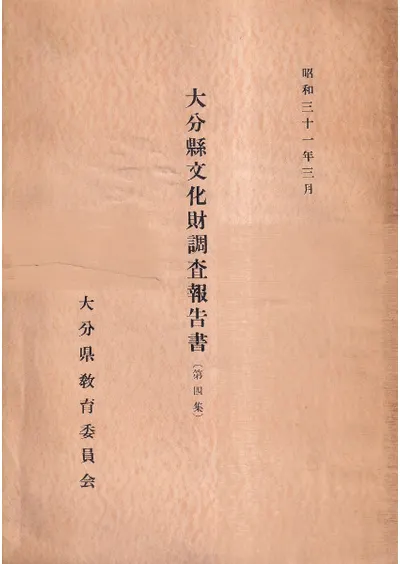 昭和三十一年三月
大分縣文化財調査報告書(第四集)
大分県教育委員会